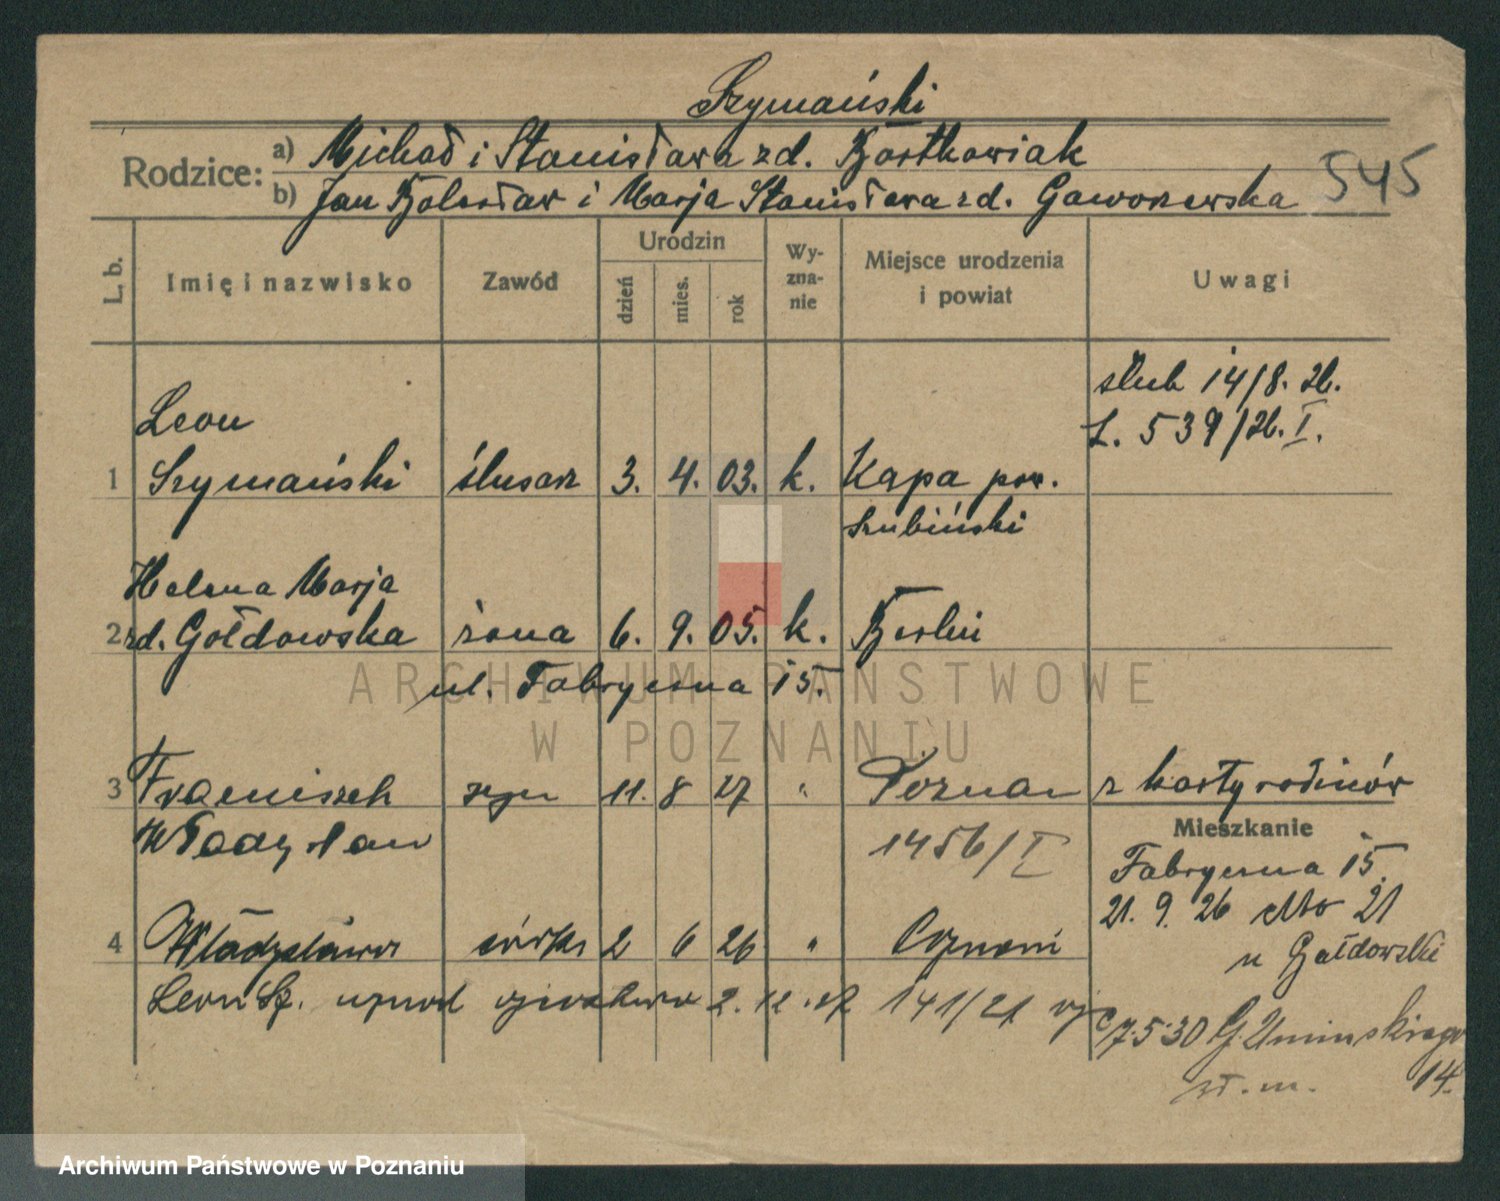 Szymański
Rodzice: a) Michał i Stanisława zd. Bartkowiak
b) Jan Bolesław i Marja Stanisława zd. Gaworzewska 545
L. b. Imię i nazwisko Zawód Urodzin dzień mies. rok Wy-zna-nie Miejsce urodzenia i powiat Uwagi
ślub 14/8. 26.
L. 539/26. I.
Leon
1 Szymański ślusarz 3. 4. 03. k. Kąpa pow.
szubiński
Helena Marja
2 zd. Gołdowska żona 6. 9. 05. k. Berlin
ul. Fabryczna 15.
3 Franciszek syn 11. 8 27 " Poznań z karty rodziców
Władysław 1456/I
Mieszkanie
Fabryczna 15.
21. 9. 26 21
u Gołdowski
4 Władysława córka 2 6 26 " Poznań
Leon Sz. uznał ojcostwo 2. 12. 27 141/21
7.5.30 G. Umińskiego
14.
ARCHIWUM PAŃSTWOWE
W POZNANIU
Archiwum Państwowe w Poznaniu